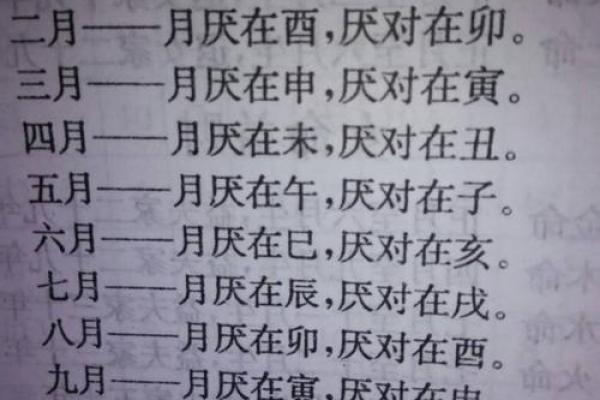 二月——月厌在酉,厌对在卯。
三月——月厌在申,厌对在寅。
四月——月厌在未,厌对在丑。
五月——月厌在午,厌对在子。
六月——月厌在巳,厌对在亥。
七月——月厌在辰,厌对在戌。
八月——月厌在卯,厌对在酉。
九月——月厌在寅,厌对在申